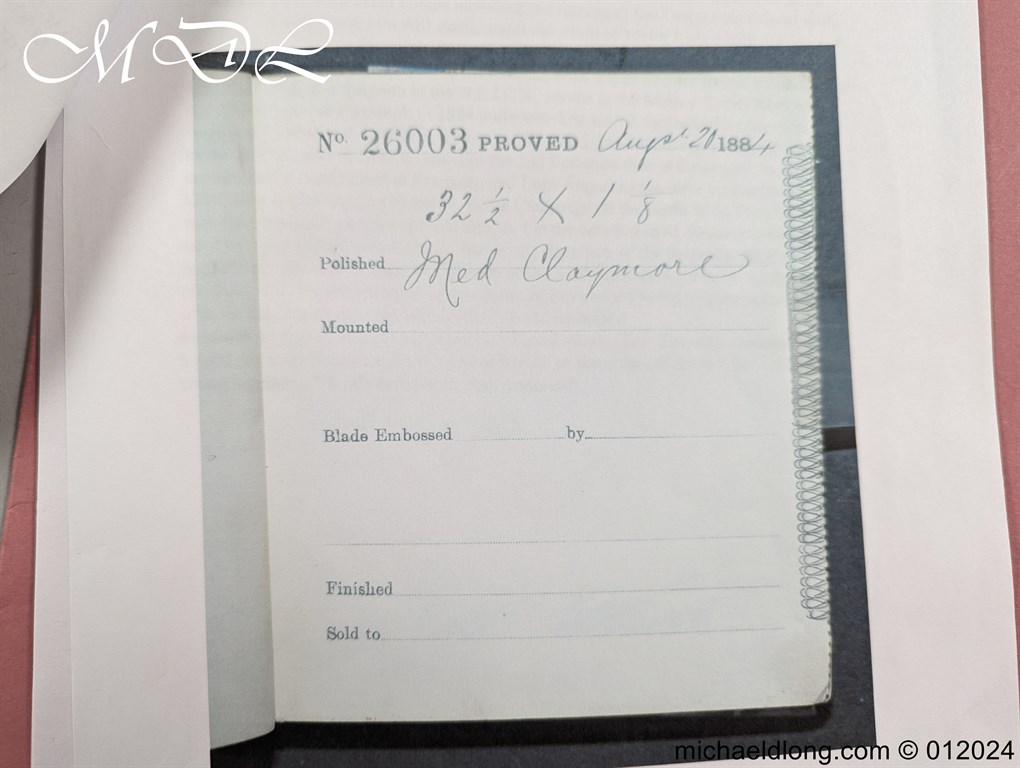 MDL
No. 26003 PROVED Augst 20 1884
32 1/2 X 1 1/8
Polished Med Claymore
Mounted
Blade Embossed by
Finished
Sold to
michaeldlong.com © 012024